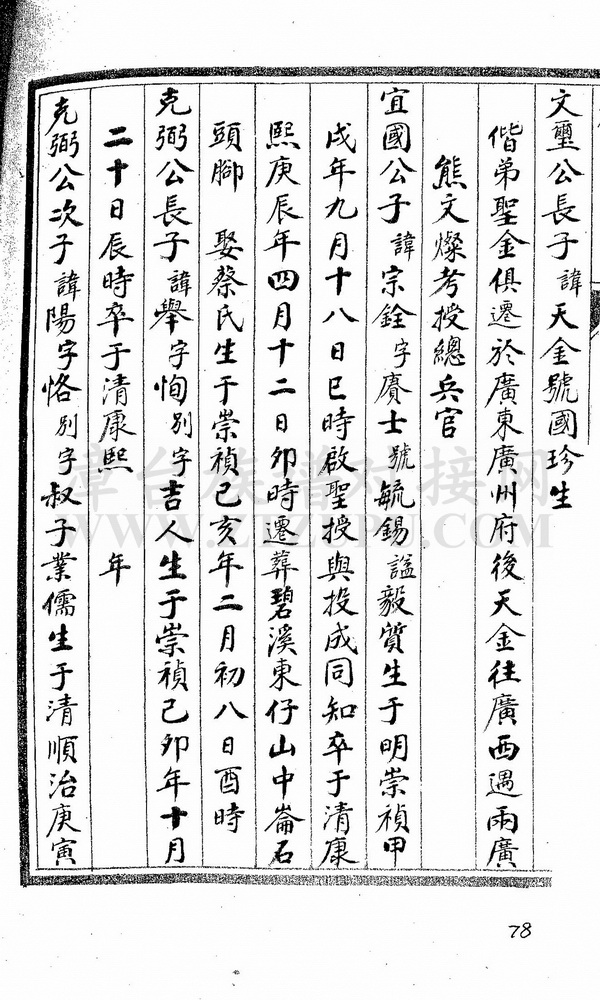 文璽公長子諱天金號國珍生
偕弟聖金俱遷於廣東廣州府後天金往廣西遇兩廣
熊文燦考授總兵官
宜國公子諱宗銓字賡士號毓錫謚毅質生于明崇禎甲
戌年九月十八日巳時啟聖授與投成同知卒于清康
熙庚辰年四月十二日卯時遷葬碧溪東仔山中崙石
頭腳　娶蔡氏生于崇禎己亥年二月初八日酉時
克弼公長子諱舉字恂別字吉人生于崇禎己卯年十月
二十日辰時卒于清康熙　年
克弼公次子諱陽字恪別字叔子業儒生于清順治庚寅
78
漳台族譜对接网
WWW.ZTZUPU.COM